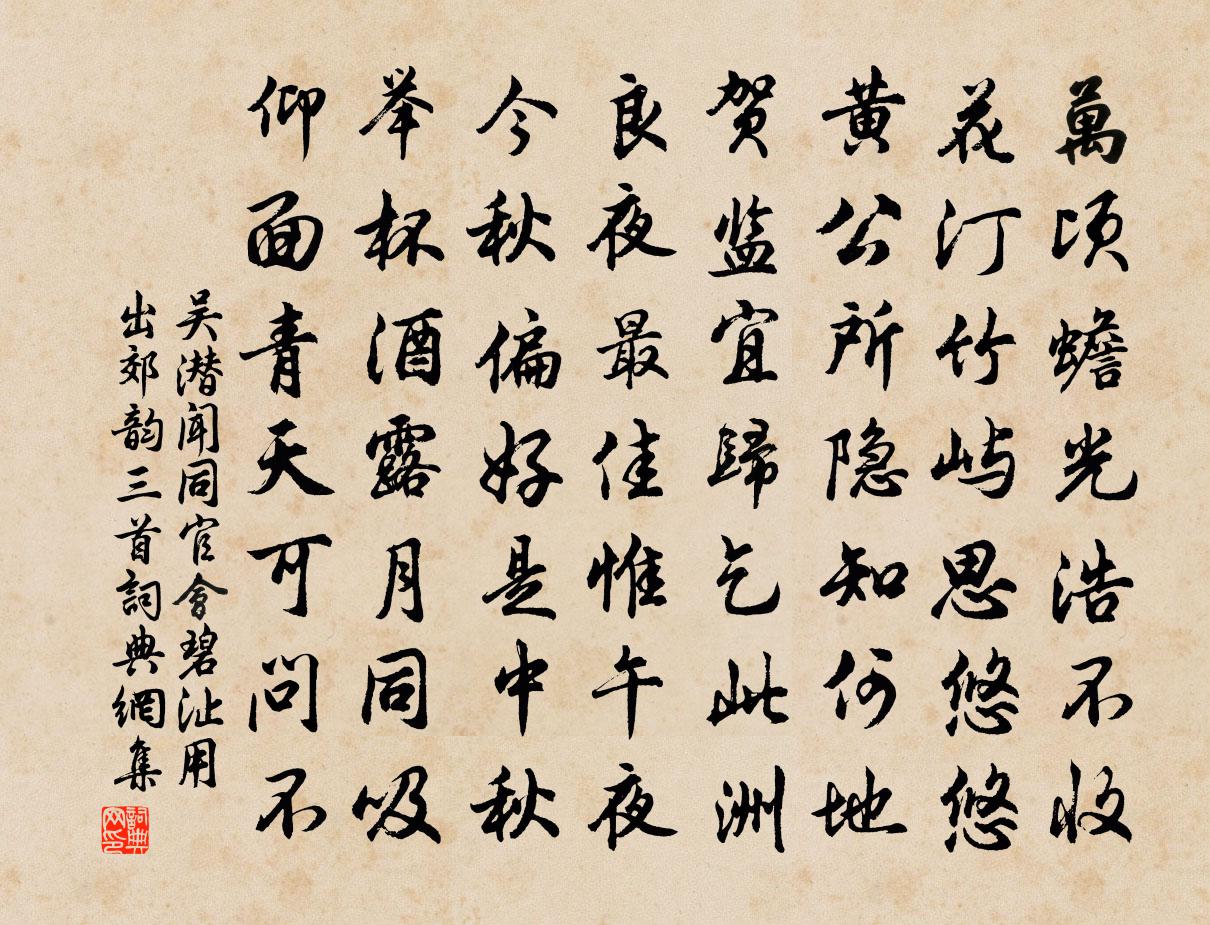 萬顷蟾光浩不收
花汀竹屿思悠悠
黄公所隐知何地
贺监宜歸乞此洲
良夜最佳惟午夜
今秋偏好是中秋
举杯酒露月同吸
仰面青天可问不
吴潜闻同官會碧沚用
出郊韵三首詞典網集
詞典网印